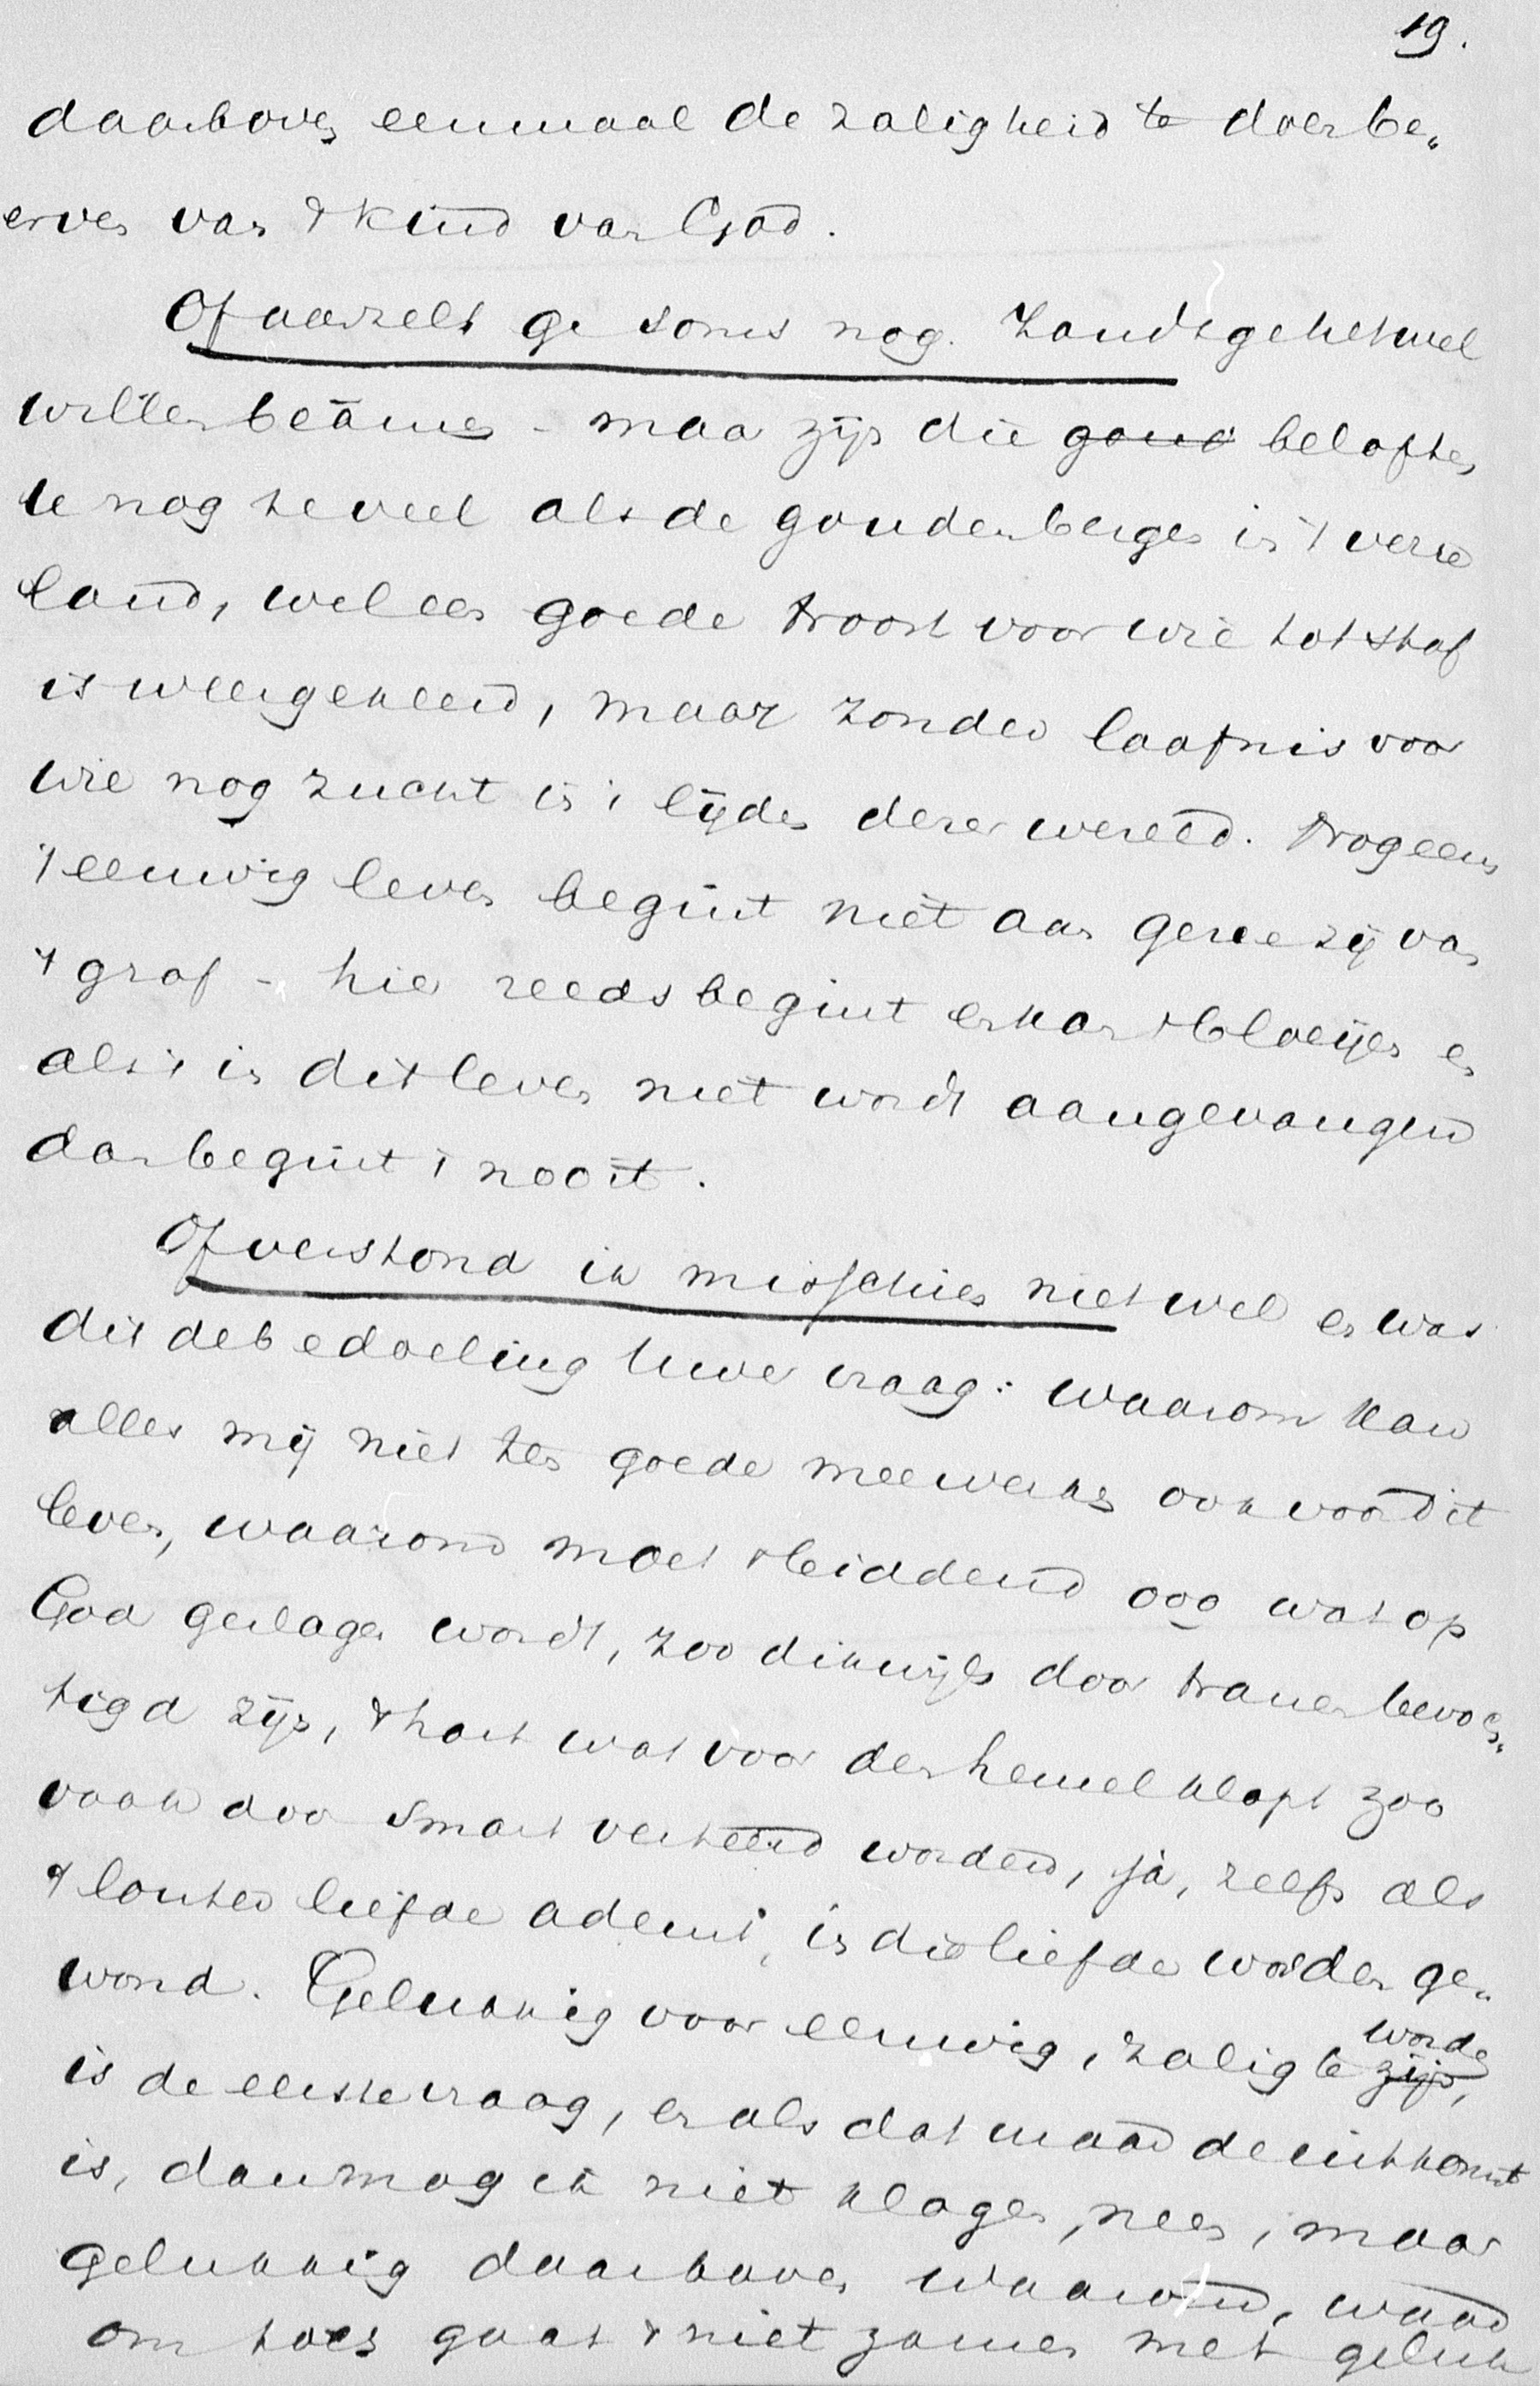 19.
daarboven eenmaal de zaligheid te doen be„
erven van 't kind van God.
Of aarzelt ge soms nog. Zoudt ge het wel
willen beâmen - maar zijn die goud beloften
U nog te veel als de gouden bergen in 't verre
land, wel een goede troost voor wie tot stof
is weergekeerd, maar zonder laafnis voor
wie nog zucht in 't lijden dezer wereld. Nog eens
't eeuwig leven begint niet aan gene zij van
't graf - hier reeds begint en kan 't bloeijen en
als 't in dit leven niet wordt aangevangen
dan begint 't nooit.
Of verstond ik misschien niet wel en was
dit de bedoeling Uwer vraag: waarom kan
alles mij niet ten goede meewerken ook voor dit
leven, waarom moet 't biddend oog wat op
God geslagen wordt, zoo dikwijls door tranen bevoch„
tigd zijn, 't hart wat voor den hemel klopt zoo
vaak door smart verteerd worden, ja, zelfs als
't louter liefde ademt, in die liefde worden ge„
wond. Gelukkig voor eeuwig, zalig te zijn, worden
is de eerste vraag, en als dat maar de uitkomst
is, dan mag ik niet klagen, neen, maar
gelukkig daarboven waarom, waar
om toch gaat 't niet zamen met geluk